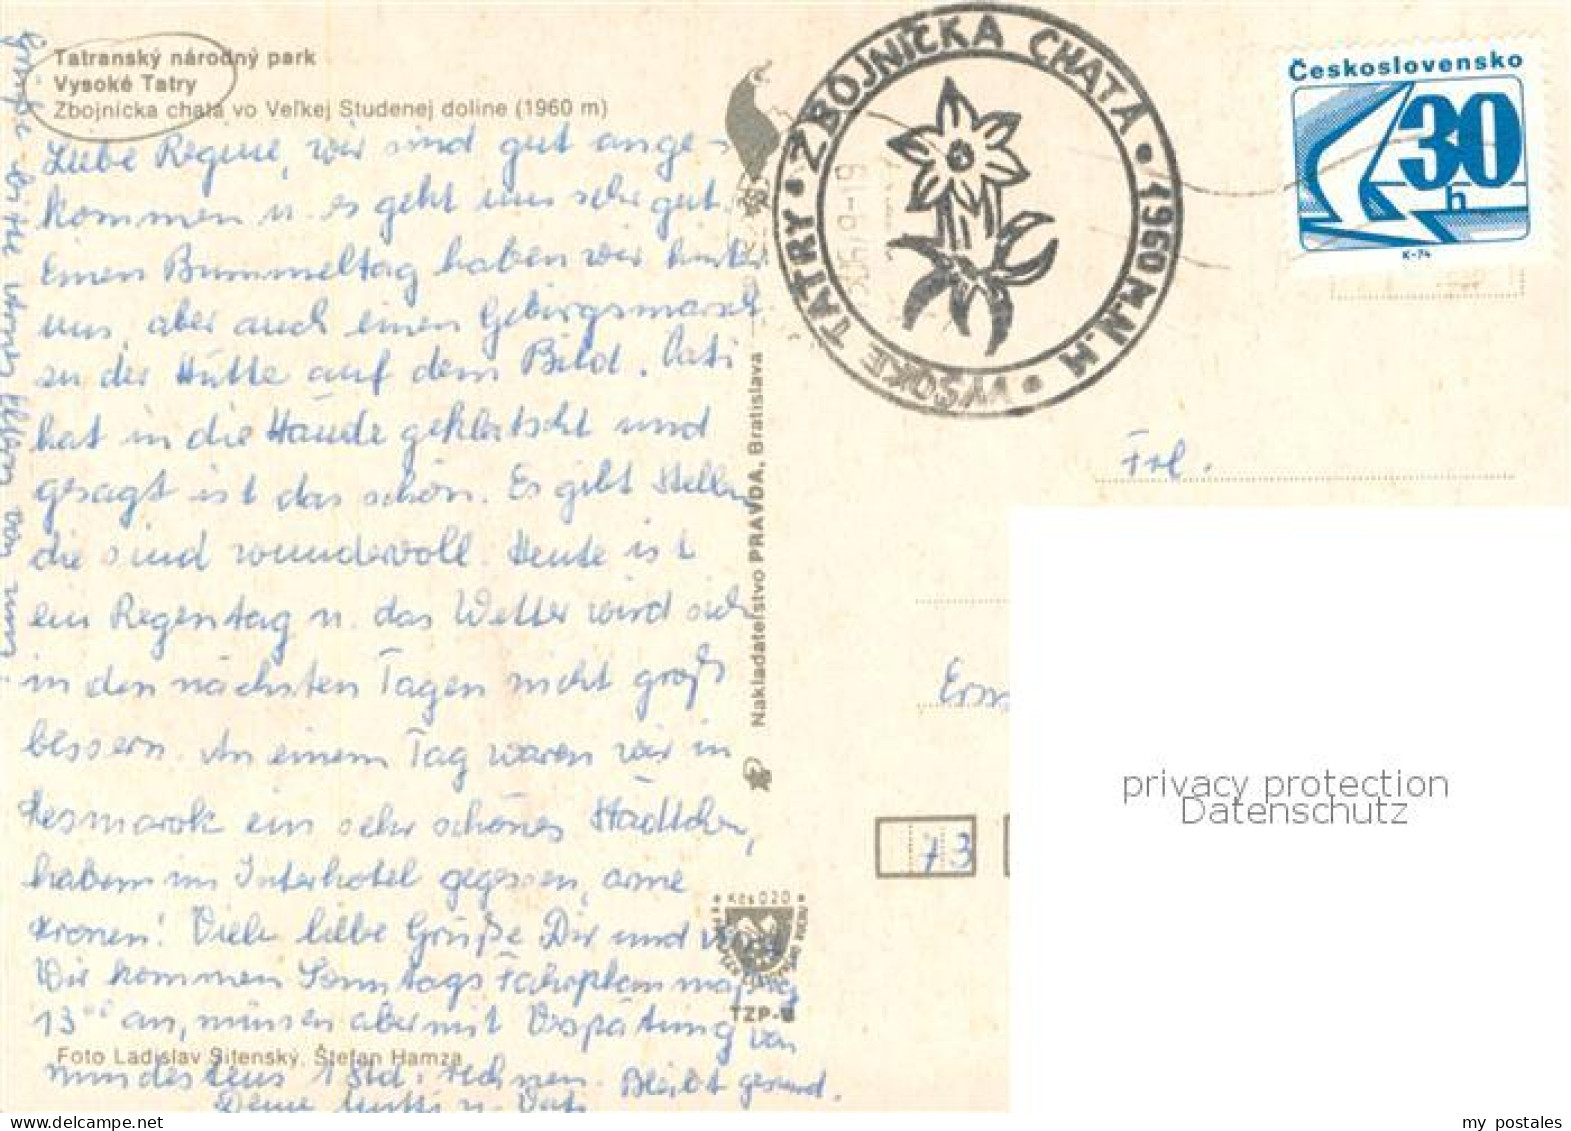 Tatranský národný park
Vysoké Tatry
Zbojnícka chata vo Veľkej Studenej doline (1960 m)
Liebe Regine, wir sind gut ange-
kommen u. es geht uns sehr gut.
Einen Bummeltag haben wir hinter
uns, aber auch einen Gebirgsmarsch
zu der Hütte auf dem Bild. Vati
hat in die Hände geklatscht und
gesagt ist das schön. Es gibt Stellen
die sind wundervoll. Heute ist
ein Regentag u. das Wetter wird sich
in den nächsten Tagen nicht groß
bessern. An einem Tag waren wir in
Kesmarok ein sehr schönes Städtchen,
haben im Interhotel gegessen, arme
Kronen! Viele liebe Grüße Dir und
Wir kommen Sonntags Fahrplanmäßig
13⁰⁰ an, müssen aber mit Verspätung von
mindestens 1 Std. rechnen. Bleibt gesund.
Deine Mutti u. Vati
Grüße bitte von uns
Foto Ladislav Sitenský, Štefan Hamza
Nakladateľstvo PRAVDA, Bratislava
Kčs 0,20
TZP-
VYSOKÉ TATRY • ZBOJNÍCKA CHATA • 1960 M.N.M •
Československo
30
h
K-74
Frl.
73
privacy protection
Datenschutz
my postales